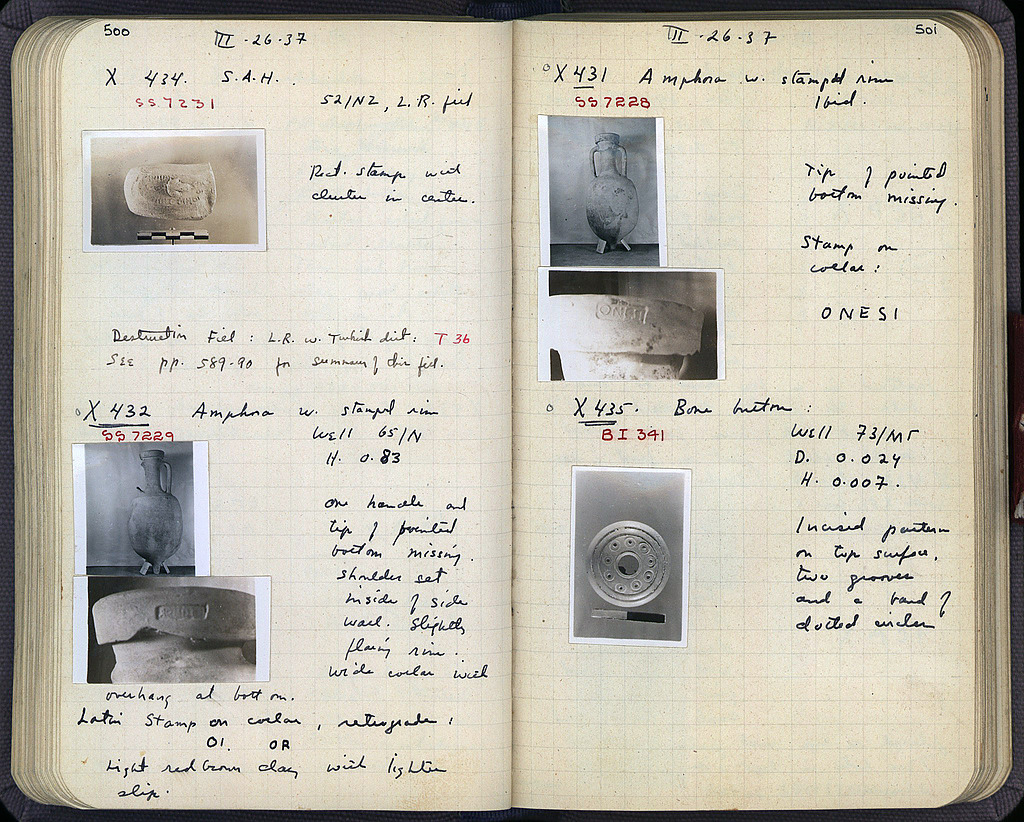 500
III - 26 - 37
X 434. S.A.H.
SS 7231
52/NZ, L.R. fill
Rect. stamp with
cluster in center.
Destruction Fill : L.R. w. Turkish dist : T 36
SEE pp. 589-90 for summary of this fill.
X 432 Amphora w. stamped rim
SS 7229
Well 65/N
H. 0.83
One handle and
tip of pointed
bottom missing.
Shoulder set
inside of side
wall. Slightly
flaring rim.
Wide collar with
overhang at bottom.
Latin Stamp on collar, retrograde :
OI. OR
Light red brown clay with lighter
slip.
501
III - 26 - 37
X 431 Amphora w. stamped rim
SS 7228
Ibid.
Tip of pointed
bottom missing.
Stamp on
collar :
ONESI
ONESI
X 435. Bone button :
BI 341
Well 73/MS
D. 0.024
H. 0.007.
Incised pattern
on top surface,
two grooves
and a band of
dotted circles